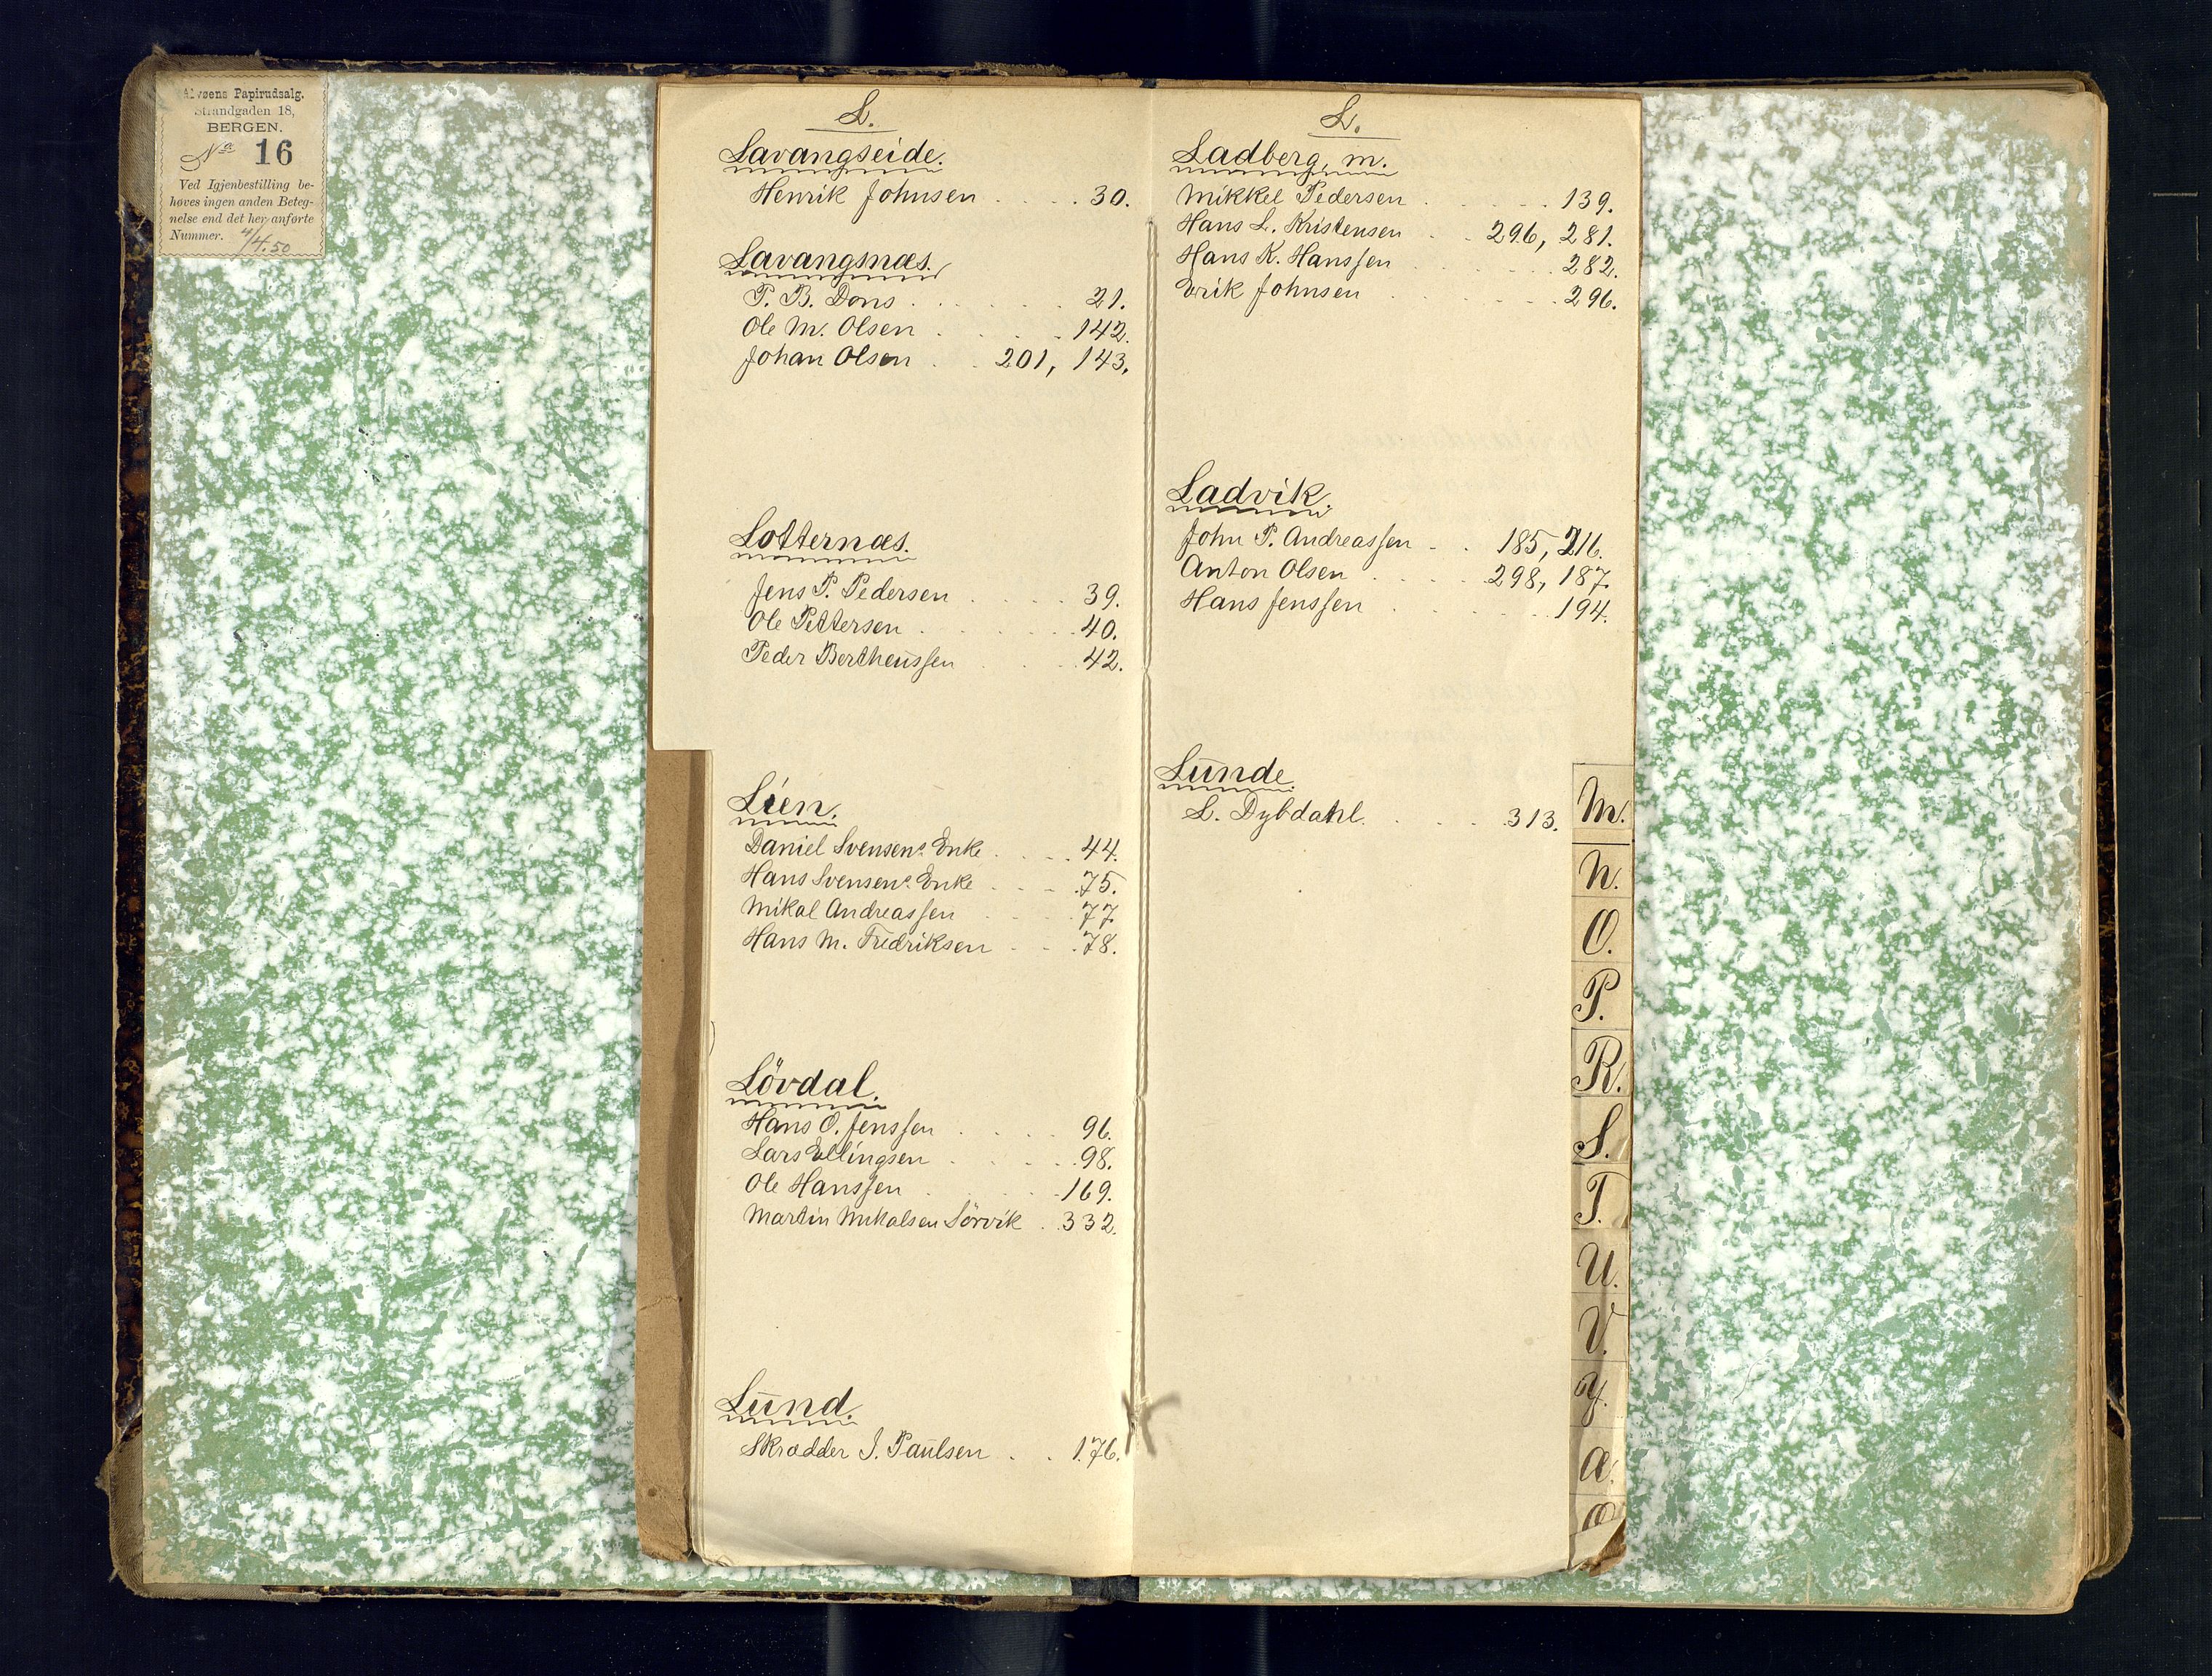 Alvøens Papirudsalg.
Strandgaden 18,
BERGEN.
No 16
Ved Igjenbestilling be-
høves ingen anden Beteg-
nelse end det her anførte
Nummer. 4/4.50
L.
Lavangseide.
Henrik Johnsen . . . . 30.
Lavangsnæs.
P. B. Dons . . . . . . 21.
Ole M. Olsen . . . . . 142.
Johan Olsen . . 201, 143.
Lotternæs.
Jens P. Pedersen . . . . 39.
Ole Pettersen . . . . . 40.
Peder Bertheussen . . . 42.
Lien.
Daniel Svensens Enke . . . 44.
Hans Svensens Enke . . . 75.
Mikal Andreassen . . . 77.
Hans M. Fredriksen . . . 78.
Lövdal.
Hans O. Jenssen . . . . 96.
Lars Ellingsen . . . . 98.
Ole Hanssen . . . . 169.
Martin Mikalsen Sörvik . . 332.
Lund.
Skrædder J. Paulsen . . 176.
L.
Ladberg, m.
Mikkel Pedersen . . . . . 139.
Hans L. Kristensen . . 296, 281.
Hans K. Hanssen . . . . . 282.
Erik Johnsen . . . . . 296.
Ladvik.
John P. Andreassen . . 185, 216.
Anton Olsen . . . . 298, 187.
Hans Jenssen . . . . . 194.
Lunde.
L. Dybdahl. . . . . 313.
M.
N.
O.
P.
R.
S.
T.
U.
V.
Y.
Æ.
Ø